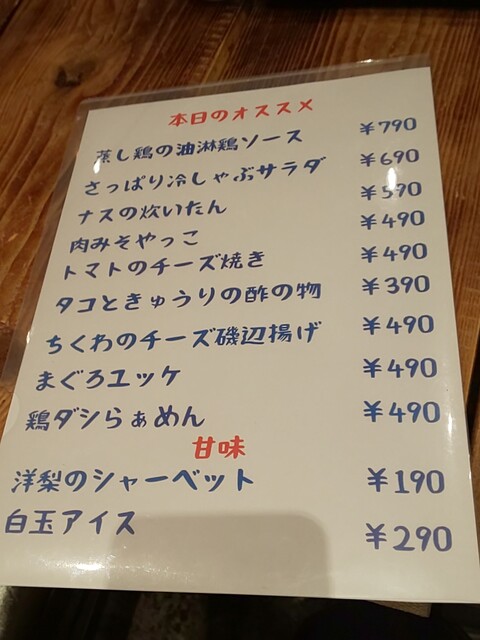 本日のオススメ
蒸し鶏の油淋鶏ソース ¥790
さっぱり冷しゃぶサラダ ¥690
ナスの炊いたん ¥590
肉みそやっこ ¥490
トマトのチーズ焼き ¥490
タコときゅうりの酢の物 ¥390
ちくわのチーズ磯辺揚げ ¥490
まぐろユッケ ¥490
鶏ダシらぁめん ¥490
甘味
洋梨のシャーベット ¥190
白玉アイス ¥290